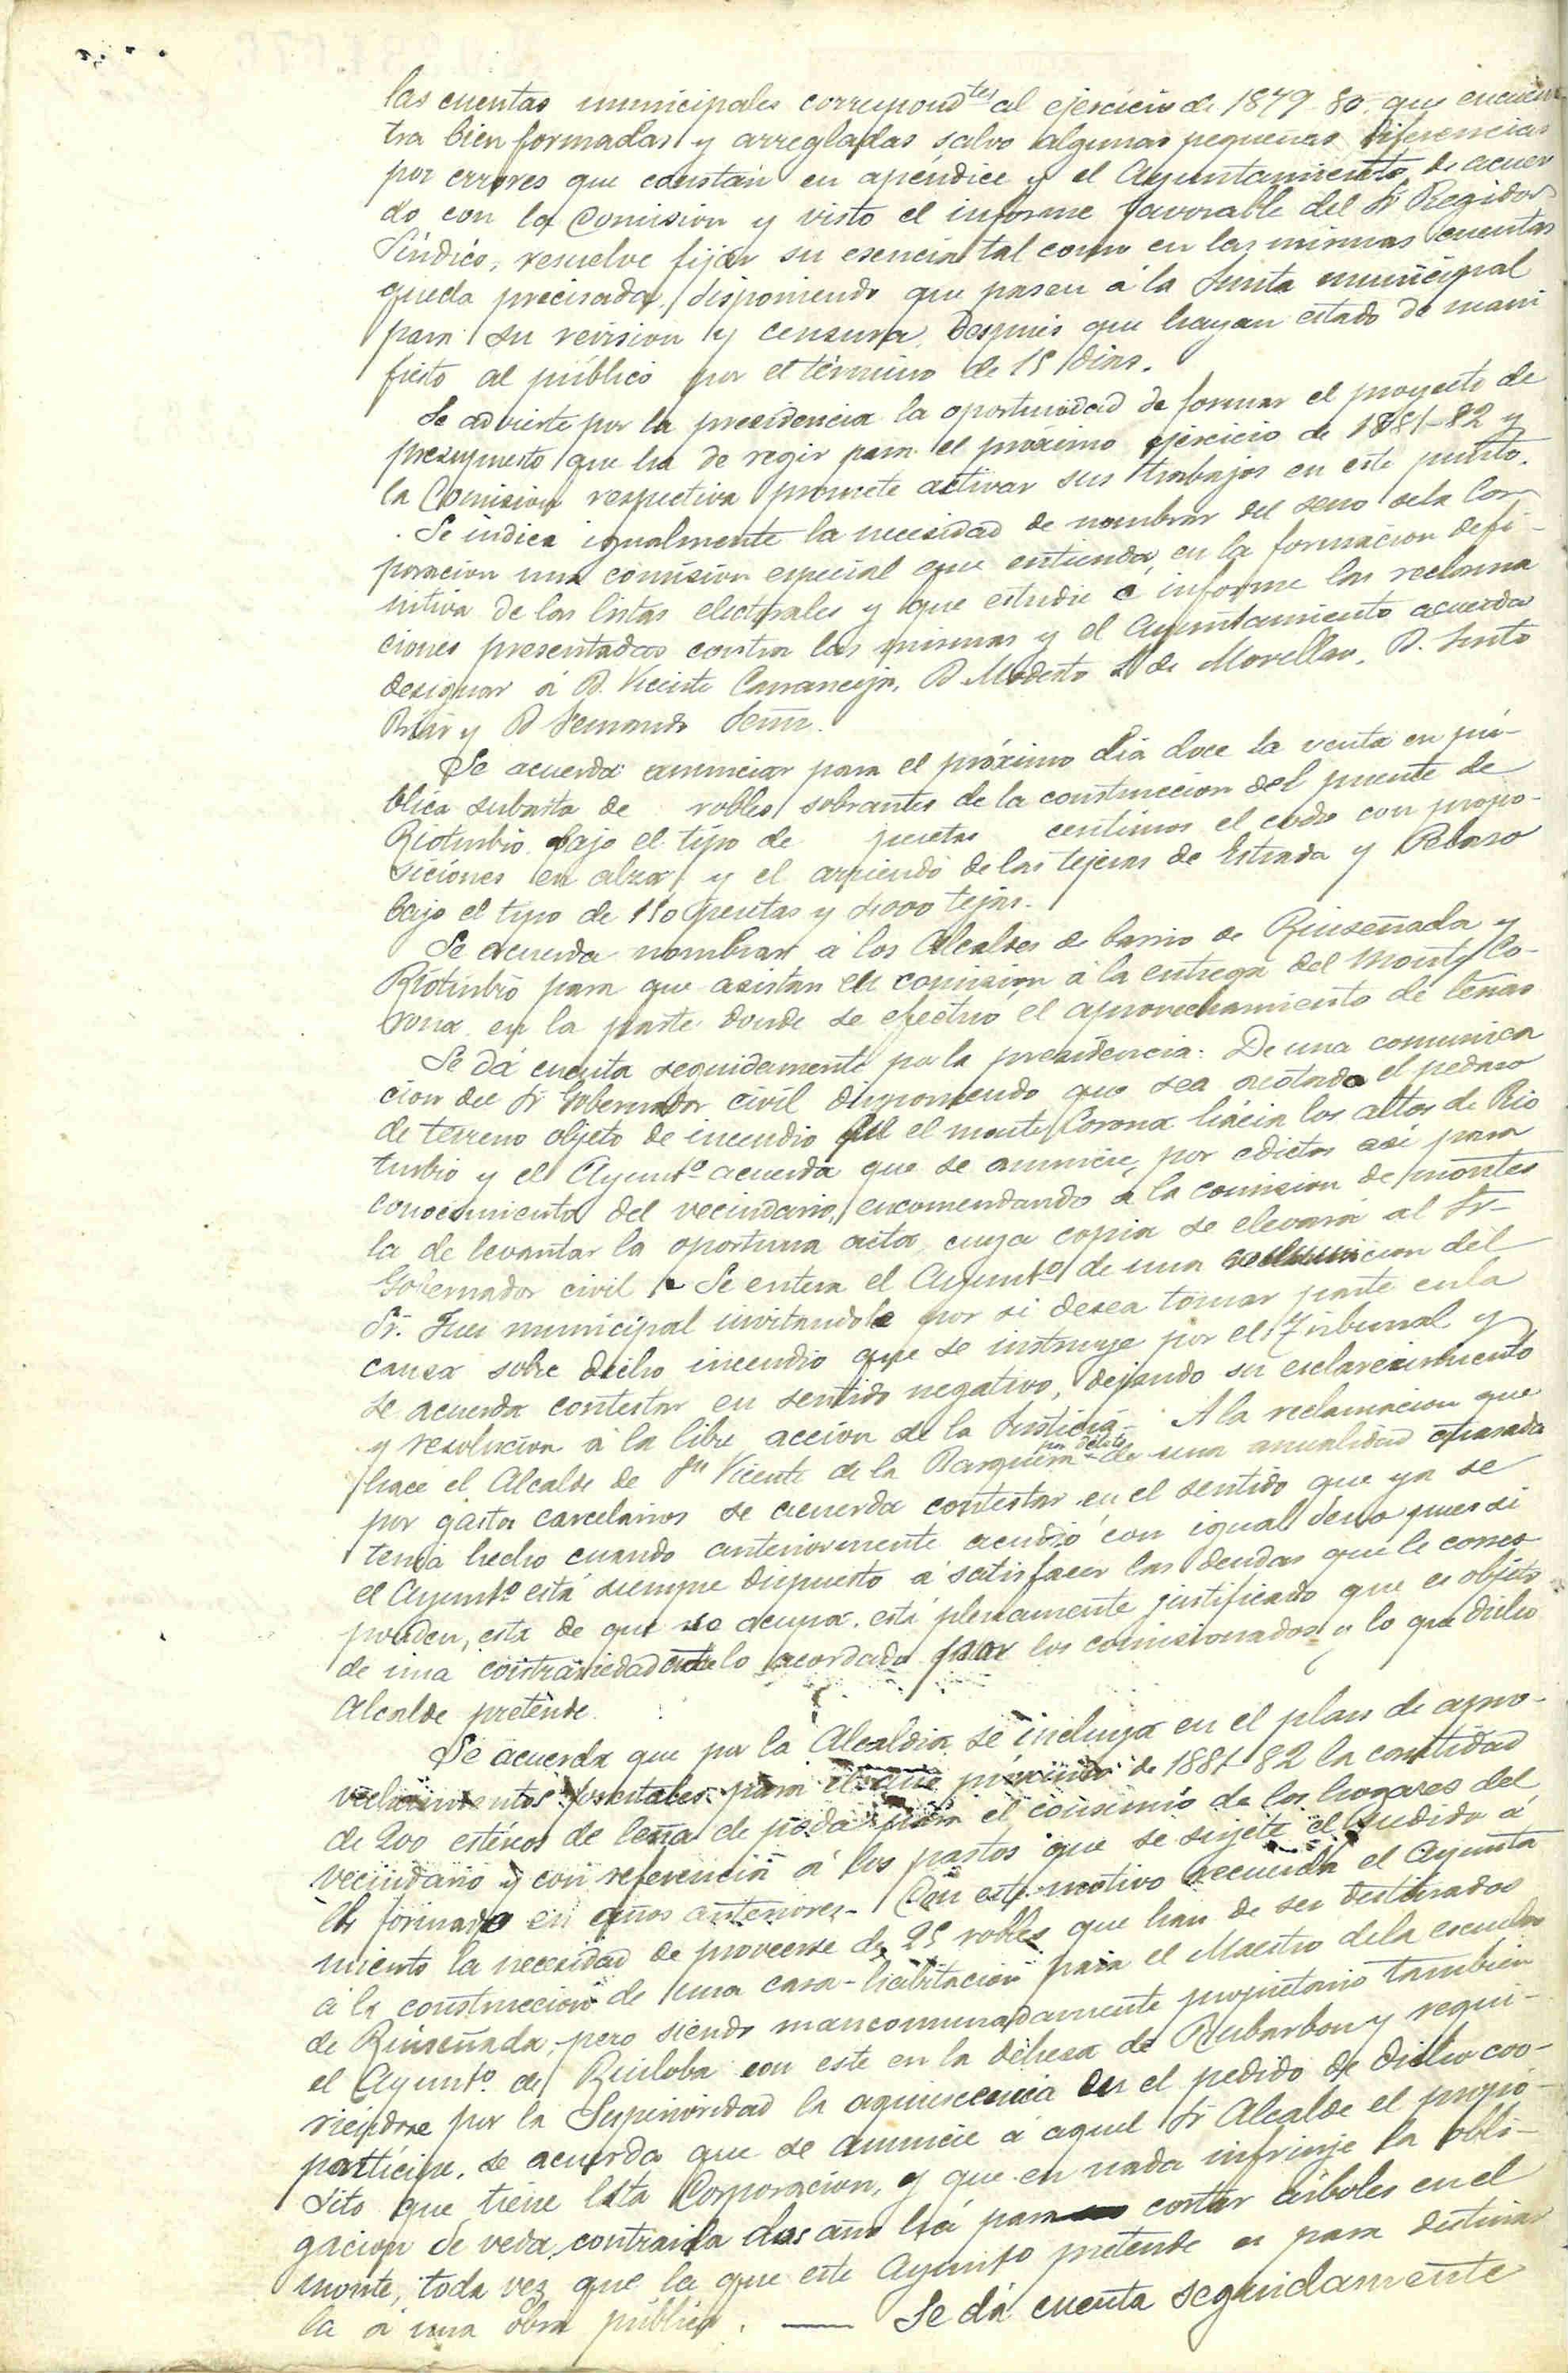 las cuentas municipales correspondtes al ejercicio de 1879-80 que encuen
tra bien formadas y arregladas salvo algunas pequeñas diferencias
por errores que constan en apéndice y el Ayuntamiento, de acuer
do con la Comision y visto el informe favorable del Sr Regidor
Síndico, resuelve fijar su esencia tal como en las mismas cuentas
queda precisada, disponiendo que pasen á la Junta municipal
para su revision y censura, despues que hayan estado de mani
fiesto al público por el término de 15 dias.
Se advierte por la presidencia la oportunidad de formar el proyecto de
presupuesto que ha de regir para el próximo ejercicio de 1881-82 y
la Comision respectiva promete activar sus trabajos en este punto.
Se indica igualmente la necesidad de nombrar del seno de la Cor
poracion una comision especial que entienda en la formacion defi-
nitiva de las listas electorales y que estudie é informe las reclama
ciones presentadas contra las mismas y el Ayuntamiento acuerda
designar á D. Vicente Carranceja, D Modesto S de Movellan, D. Justo
y D Fernando
Se acuerda anunciar para el próximo dia doce la venta en pú-
blica subasta de robles sobrantes de la construccion del puente de
Rioturbio bajo el tipo de pesetas centimos el codo con propo-
siciones en alza y el arriendo de las tejeras de Estrada y
bajo el tipo de 110 pesetas y 4000 tejas.
Se acuerda nombrar á los Alcaldes de barrio de Ruiseñada y
Rioturbio para que asistan en comision á la entrega del Monte Co-
rona en la parte donde se efectuó el aprovechamiento de leñas
Se dá cuenta seguidamente por la presidencia: De una comunica
cion del Sr Gobernador civil disponiendo que sea acotado el pedazo
de terreno objeto de incendio en el monte Corona hácia los altos de Rio
turbio y el Ayunto acuerda que se anuncie por edictos así para
conocimiento del vecindario, encomendando á la comision de montes
la de levantar la oportuna acta, cuya copia se elevará al Sr
Gobernador civil Se entera el Ayunto de una del
Sr. Juez municipal invitandole por si desea tomar parte en la
causa sobre dicho incendio que se instruye por el Tribunal y
se acuerda contestar en sentido negativo, dejando su esclarecimiento
y resolucion á la libre accion de la Justicia - A la reclamacion que
hace el Alcalde de Sn Vicente de la Barquera por débito de una anualidad atrasada
por gastos carcelarios se acuerda contestar en el sentido que ya se
tenia hecho cuando anteriormente acudió con igual pues si
el Ayunto está siempre dispuesto á satisfacer las deudas que le corres
ponden, esta de que se ocupa, está plenamente justificado que es objeto
de una contrariedad entre lo acordado por los comisionados y lo que dicho
Alcalde pretende.
Se acuerda que por la Alcaldia se incluya en el plan de apro-
vechamientos forestales para el año próximo de 1881-82 la cantidad
de 200 estéreos de leña de poda para el consumo de los hogares del
vecindario y con referencia á los pastos que se sujete el pedido á
los formados en años anteriores - Con este motivo recuerda el Ayunta
miento la necesidad de proveerse de 25 robles que han de ser destinados
á la construccion de una casa-habitacion para el Maestro de la escuela
de Ruiseñada, pero siendo mancomunadamente propietario tambien
el Ayunto de Ruiloba con este en la dehesa de Rubarbon y requi-
riéndose por la Superioridad la aquiescencia en el pedido de dicho coo-
participe, se acuerda que se anuncie á aquel Sr Alcalde el propó-
sito que tiene esta Corporacion, y que en nada infrinje la obli-
gacion de veda contraida dos años há para cortar árboles en el
monte, toda vez que la que este Ayunto pretende es para destinar
la á una obra pública. —— Se dá cuenta seguidamente